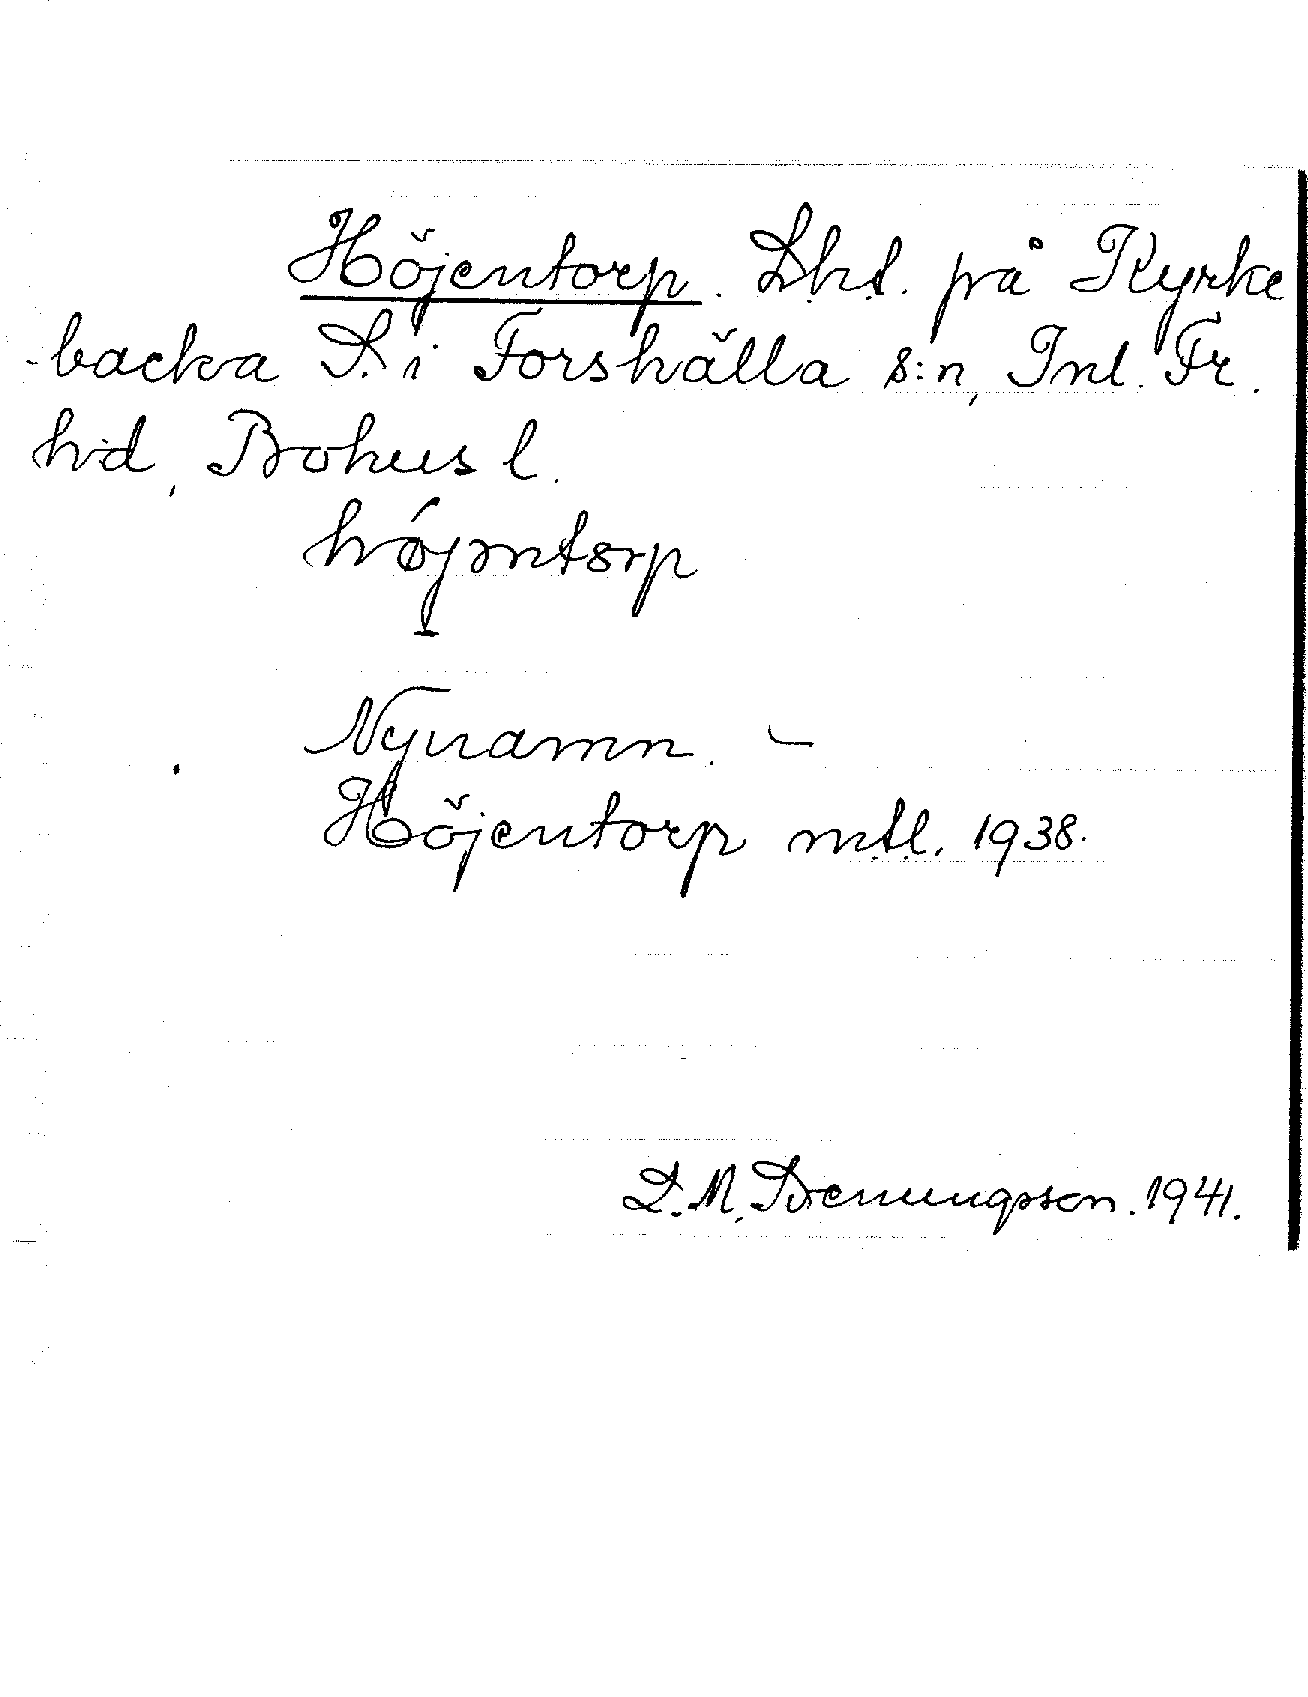 Höjentorp. Lht. på Kyrke
-backa S. i Forshälla s:n, Inl. Fr.
hd, Bohus l.
højəntɔrp
Nynamn. –
Höjentorp mtl. 1938.
D. M. 1941.